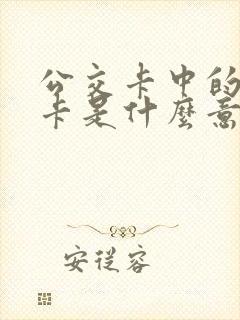 公交卡中的
卡是什麼意
安從容